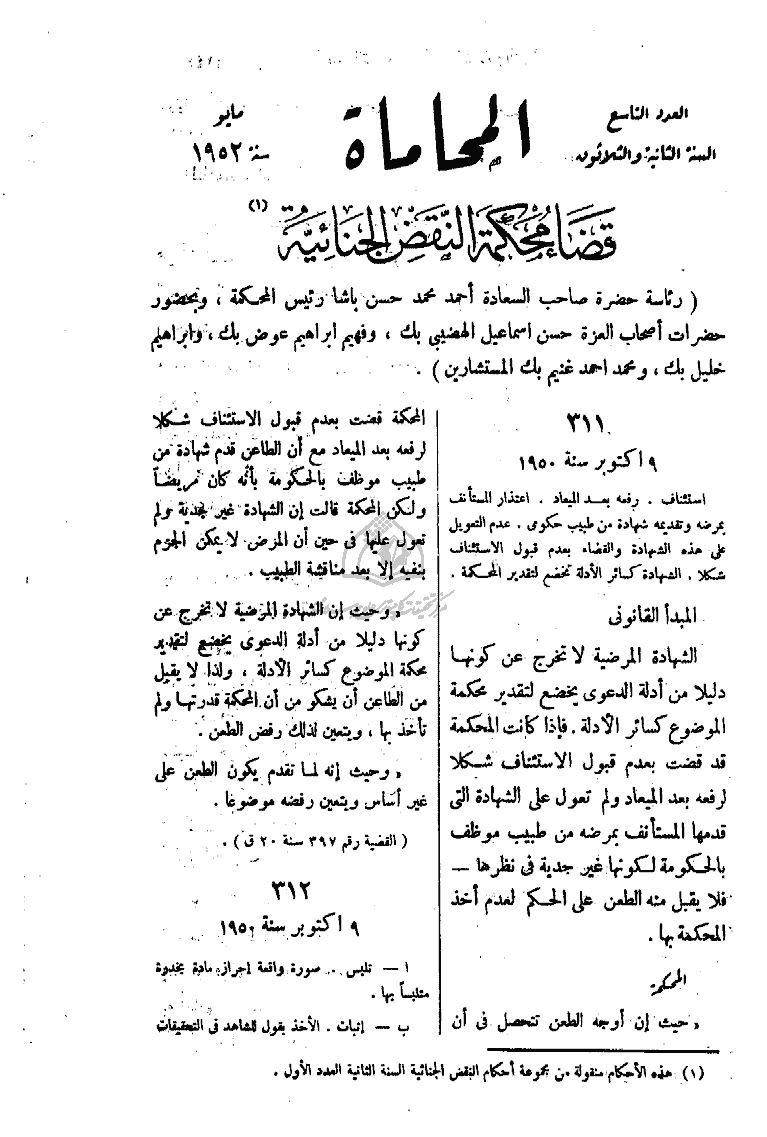 العدد التاسع
السنة الثانية والثلاثون
المحاماة
مايو
سنة ١٩٥٢
قضاء محكمة النقض الجنائية (١)
( رئاسة حضرة صاحب السعادة أحمد محمد حسن باشا رئيس المحكمة ، وبحضور
حضرات أصحاب العزة حسن اسماعيل الهضيبى بك ، وفهيم ابراهيم عوض بك ، وابراهيم
خليل بك ، ومحمد احمد غنيم بك المستشارين ) .
٣١١
٩ اكتوبر سنة ١٩٥٠
استئناف . رفعه بعد الميعاد . اعتذار المستأنف
بمرضه وتقديمه شهادة من طبيب حكومى . عدم التعويل
على هذه الشهادة والقضاء بعدم قبول الاستئناف
شكلا . الشهادة كسائر الأدلة تخضع لتقدير المحكمة .
المبدأ القانونى
الشهادة المرضية لا تخرج عن كونها
دليلا من أدلة الدعوى يخضع لتقدير محكمة
الموضوع كسائر الأدلة . فإذا كانت المحكمة
قد قضت بعدم قبول الاستئناف شكلا
لرفعه بعد الميعاد ولم تعول على الشهادة التى
قدمها المستأنف بمرضه من طبيب موظف
بالحكومة لكونها غير جدية فى نظرها —
فلا يقبل منه الطعن على الحكم لعدم أخذ
المحكمة بها .
المحكمة
« حيث إن أوجه الطعن تتحصل فى أن
المحكمة قضت بعدم قبول الاستئناف شكلا
لرفعه بعد الميعاد مع أن الطاعن قدم شهادة من
طبيب موظف بالحكومة بأنه كان مريضاً
ولكن المحكمة قالت إن الشهادة غير مجدية ولم
تعول عليها فى حين أن المرض لا يمكن الجزم
بنفيه إلا بعد مناقشة الطبيب .
« وحيث إن الشهادة المرضية لا تخرج عن
كونها دليلا من أدلة الدعوى يخضع لتقدير
محكمة الموضوع كسائر الأدلة ، ولذا لا يقبل
من الطاعن أن يشكو من أن المحكمة قدرتها ولم
تأخذ بها ، ويتعين لذلك رفض الطعن .
« وحيث إنه لما تقدم يكون الطعن على
غير أساس ويتعين رفضه موضوعا .
( القضية رقم ٣٩٧ سنة ٢٠ ق ) .
٣١٢
٩ اكتوبر سنة ١٩٥٠
ا — تلبس . صورة واقعة إحراز مادة مخدرة
متلبساً بها .
ب — إثبات . الأخذ بقول للشاهد فى التحقيقات
(١) هذه الأحكام منقولة من مجموعة أحكام النقض الجنائية السنة الثانية العدد الأول .